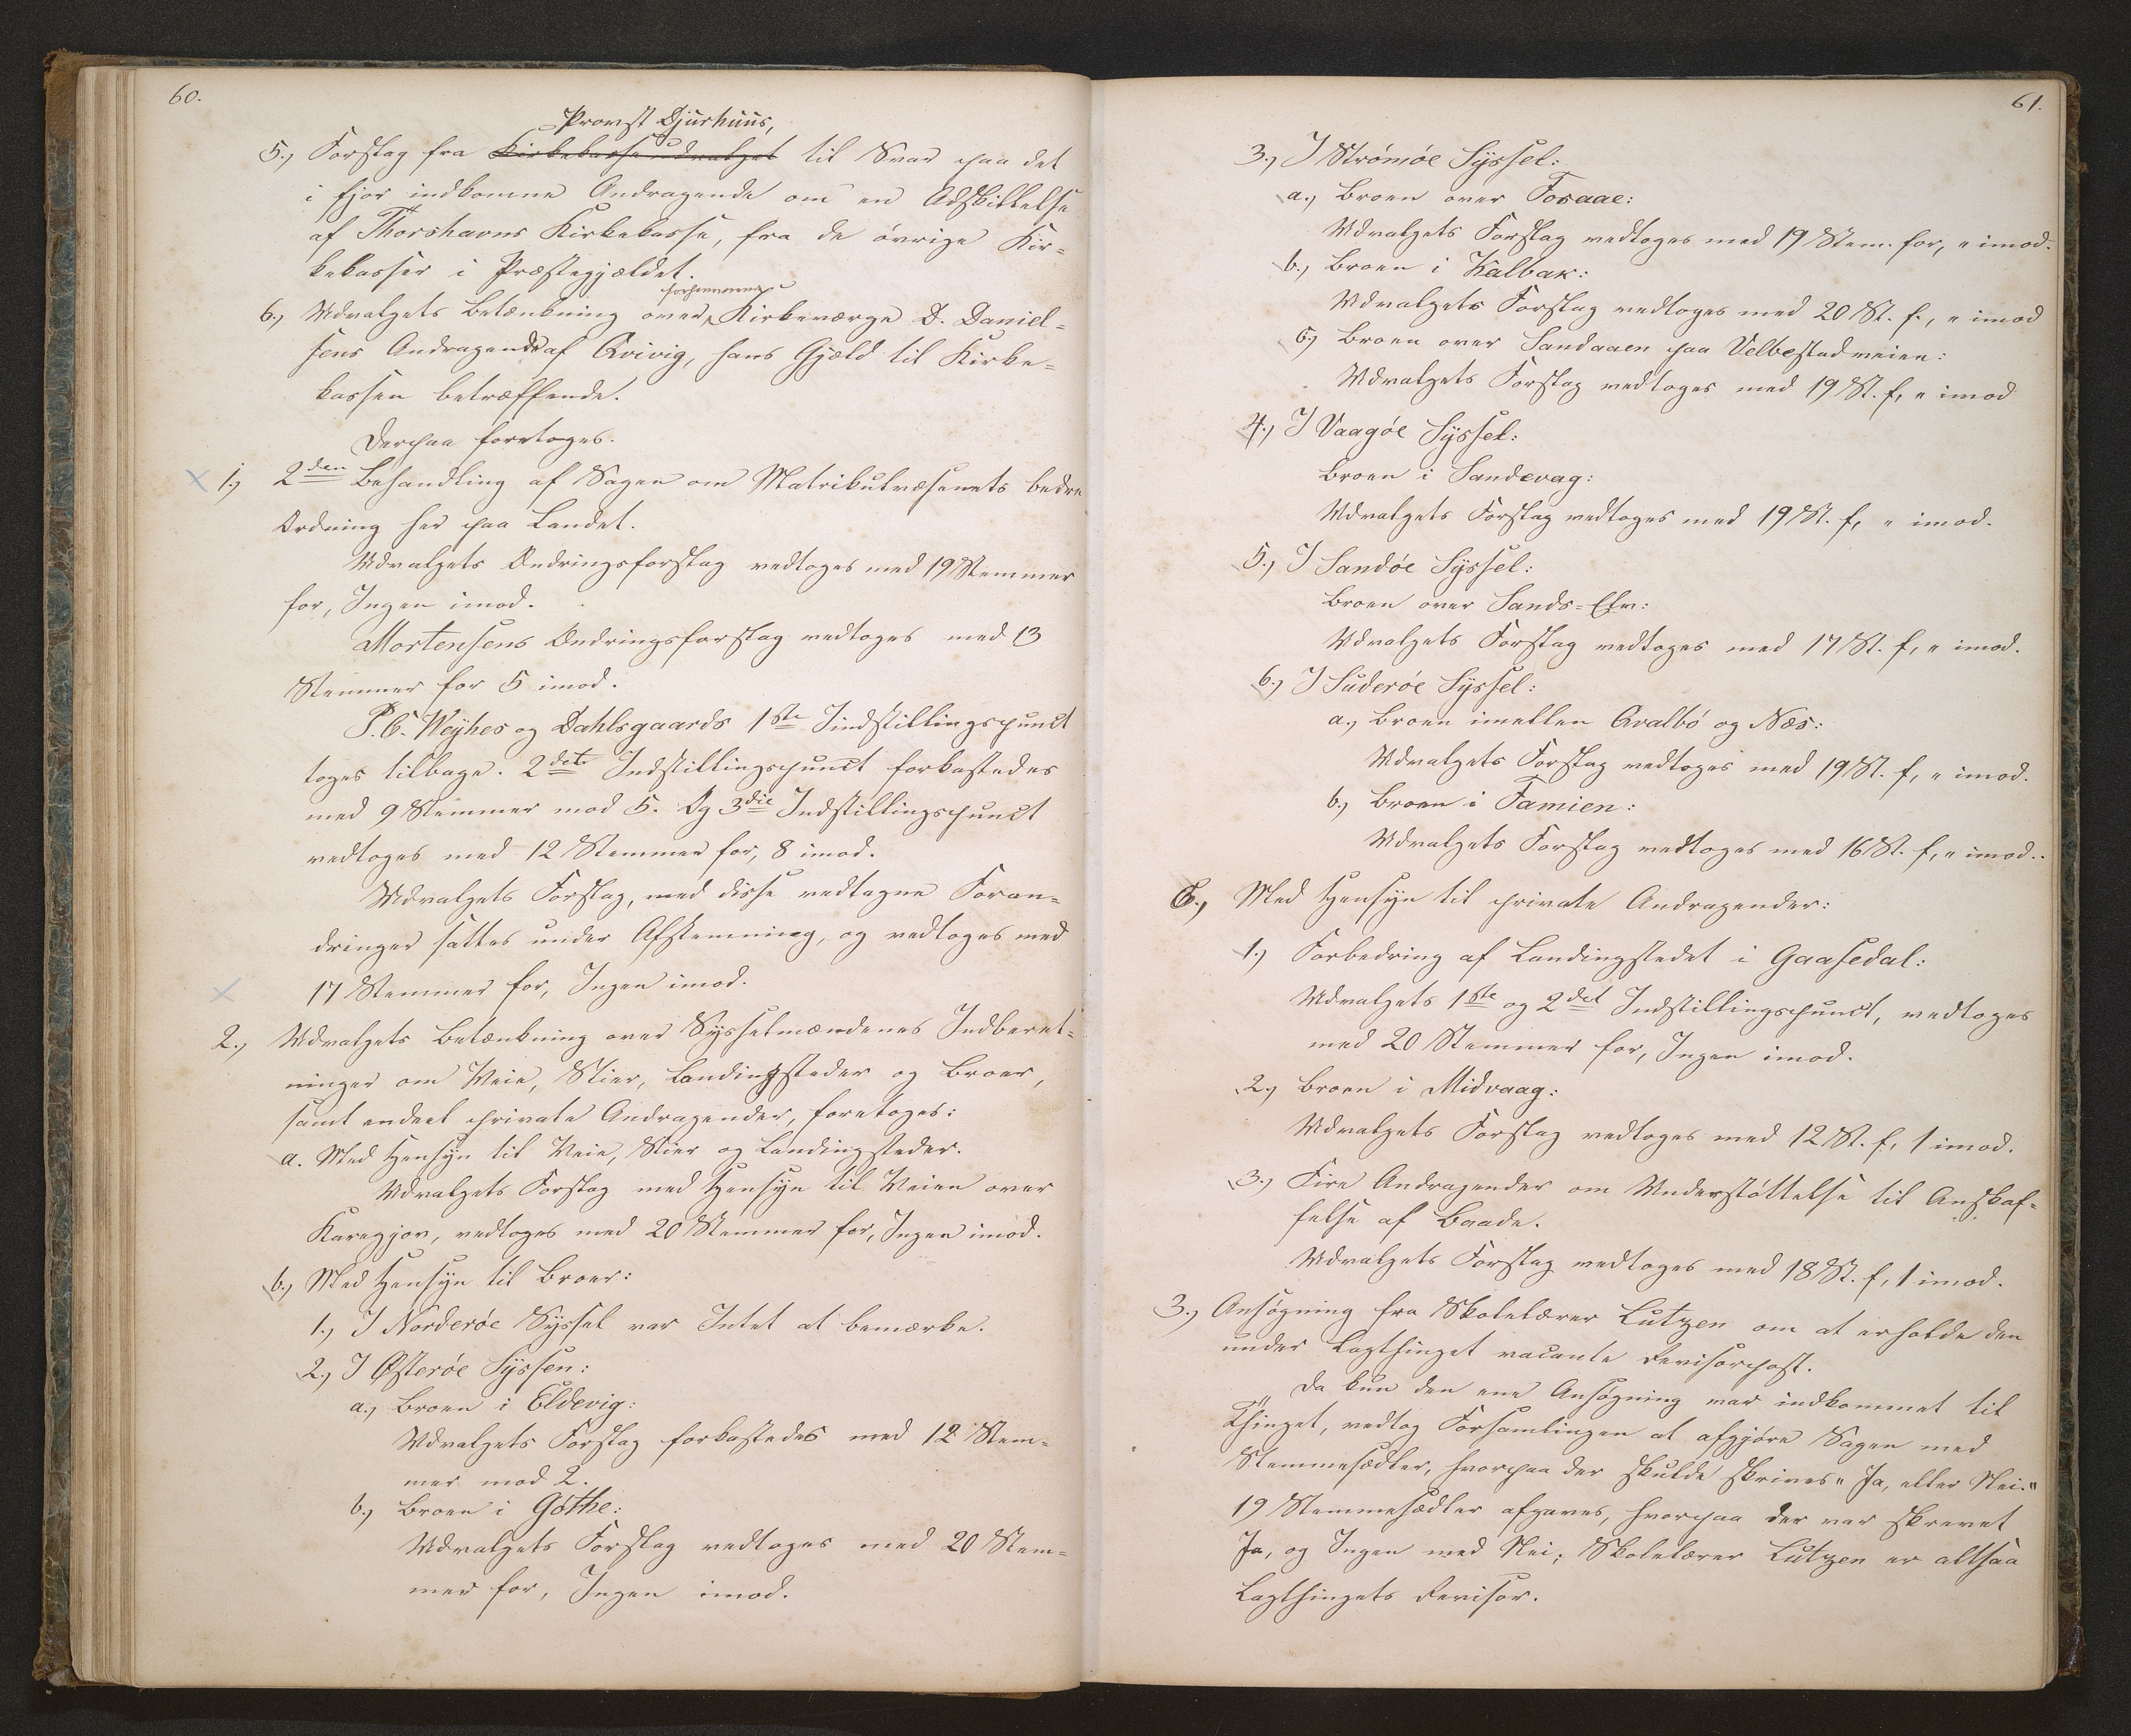 60.
Provst Djurhuus,
5.) Forslag fra Kirkekasseudvalget til Svar paa det
i fjor indkomne Andragende om en Adskillelse
af Thorshavns Kirkekasse, fra de øvrige Kir=
kekasser i Præstegjældet.
forhenværende
6.) Udvalgets Betænkning over Kirkeværge D. Daniel=
sens Andragende af Qvivig, hans Gjæld til Kirke=
kassen betræffende.
Derpaa foretoges.
1.) 2den Behandling af Sagen om Matrikulvæsenets bedre
Ordning her paa Landet.
Udvalgets Ændringsforslag vedtoges med 19 Stemmer
for, Ingen imod.
Mortensens Ændringsforslag vedtoges med 13
Stemmer for 5 imod.
P. C. Weyhes og Dahlsgaards 1ste Indstillingspunct
toges tilbage. 2det Indstillingspunct forkastedes
med 9 Stemmer mod 5. Og 3die Indstillingspunct
vedtoges med 12 Stemmer for, 8 imod.
Udvalgets Forslag, med disse vedtagne Foran=
dringer sattes under Afstemning, og vedtoges med
17 Stemmer for, Ingen imod.
2.) Udvalgets Betænkning over Sysselmændenes Indberet=
ninger om Veie, Stier, Landingsteder og Broer,
samt endeel private Andragender, foretoges:
a. Med Hensyn til Veie, Stier og Landingsteder.
Udvalgets Forslag med Hensyn til Veien over
Karegjov, vedtoges med 20 Stemmer for, Ingen imod.
b.) Med Hensyn til Broer:
1.) I Norderøe Syssel var Intet at bemærke.
2.) I Østerøe Syssen:
a.) Broen i Eldevig:
Udvalgets Forslag forkastedes med 12 Stem=
mer mod 2.
b.) Broen i Gøthe:
Udvalgets Forslag vedtoges med 20 Stem=
mer for, Ingen imod.
61.
3.) I Strømøe Syssel:
a.) Broen over Fosaae:
Udvalgets Forslag vedtoges med 19 Stem. for, " imod.
b.) Broen i Kalbak:
Udvalgets Forslag vedtoges med 20 St. f., " imod
c.) Broen over Sandaaen paa Velbestadveien:
Udvalgets Forslag vedtoges med 19 St. f, " imod
4.) I Vaagøe Syssel:
Broen i Sandevag:
Udvalgets Forslag vedtoges med 19 St. f, " imod.
5.) I Sandøe Syssel:
Broen over Sands=Elv:
Udvalgets Forslag vedtoges med 17 St. f, " imod.
6.) I Suderøe Syssel:
a.) Broen imellem Qvalbø og Næs:
Udvalgets Forslag vedtoges med 19 St. f, " imod.
b.) Broen i Famien:
Udvalgets Forslag vedtoges med 16 St. f, " imod.
C.) Med Hensyn til private Andragender:
1.) Forbedring af Landingstedet i Gaasedal:
Udvalgets 1ste og 2det Indstillingspunct, vedtoges
med 20 Stemmer for, Ingen imod.
2.) Broen i Midvaag:
Udvalgets Forslag vedtoges med 12 St. f, 1 imod.
3.) Fire Andragender om Understøttelse til Anskaf=
felse af Baade.
Udvalgets Forslag vedtoges med 18 St. f, 1 imod.
3.) Ansøgning fra Skolelærer Lützen om at erholde den
under Lagthinget vacante Revisorpost.
Da kun den ene Ansøgning var indkommet til
Thinget, vedtog Forsamlingen at afgjøre Sagen med
Stemmesedler, hvorpaa der skulde skrives "Ja, eller Nei."
19 Stemmesedler afgaves, hvorpaa der var skrevet
Ja, og Ingen med Nei; Skolelærer Lützen er altsaa
Lagthingets Revisor.